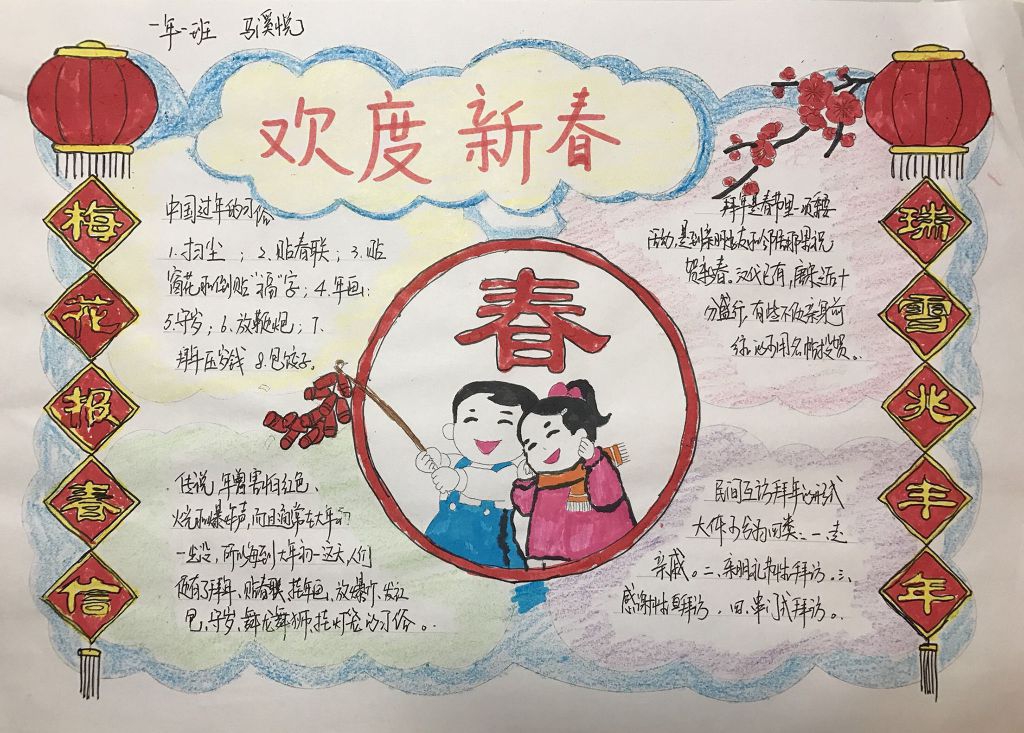 一年一班 马溪悦
欢度新春
梅花报春信
瑞雪兆丰年
中国过年的习俗
1.扫尘；2.贴春联；3.贴
窗花和倒贴“福”字；4.年画；
5.守岁；6.放鞭炮；7.
拜年压岁钱 8.包饺子。
春
拜年是春节里一项重要
活动，是到亲朋好友和邻居那里祝
贺新春。汉代已有，唐宋之后十
分盛行，有些不便亲身前
往，可用名帖投贺。
传说，年兽害怕红色、
火光和爆炸声，而且通常在大年初
一出没，所以每到大年初一这天，人们
便有了拜年、贴春联、挂年画、放爆竹、发红
包、守岁、舞龙舞狮、挂灯笼的习俗。
民间互访拜年的形式
大体可分为四类：一、走
亲戚。二、亲朋礼节性拜访。三、
感谢性拜访，四、串门式拜访。